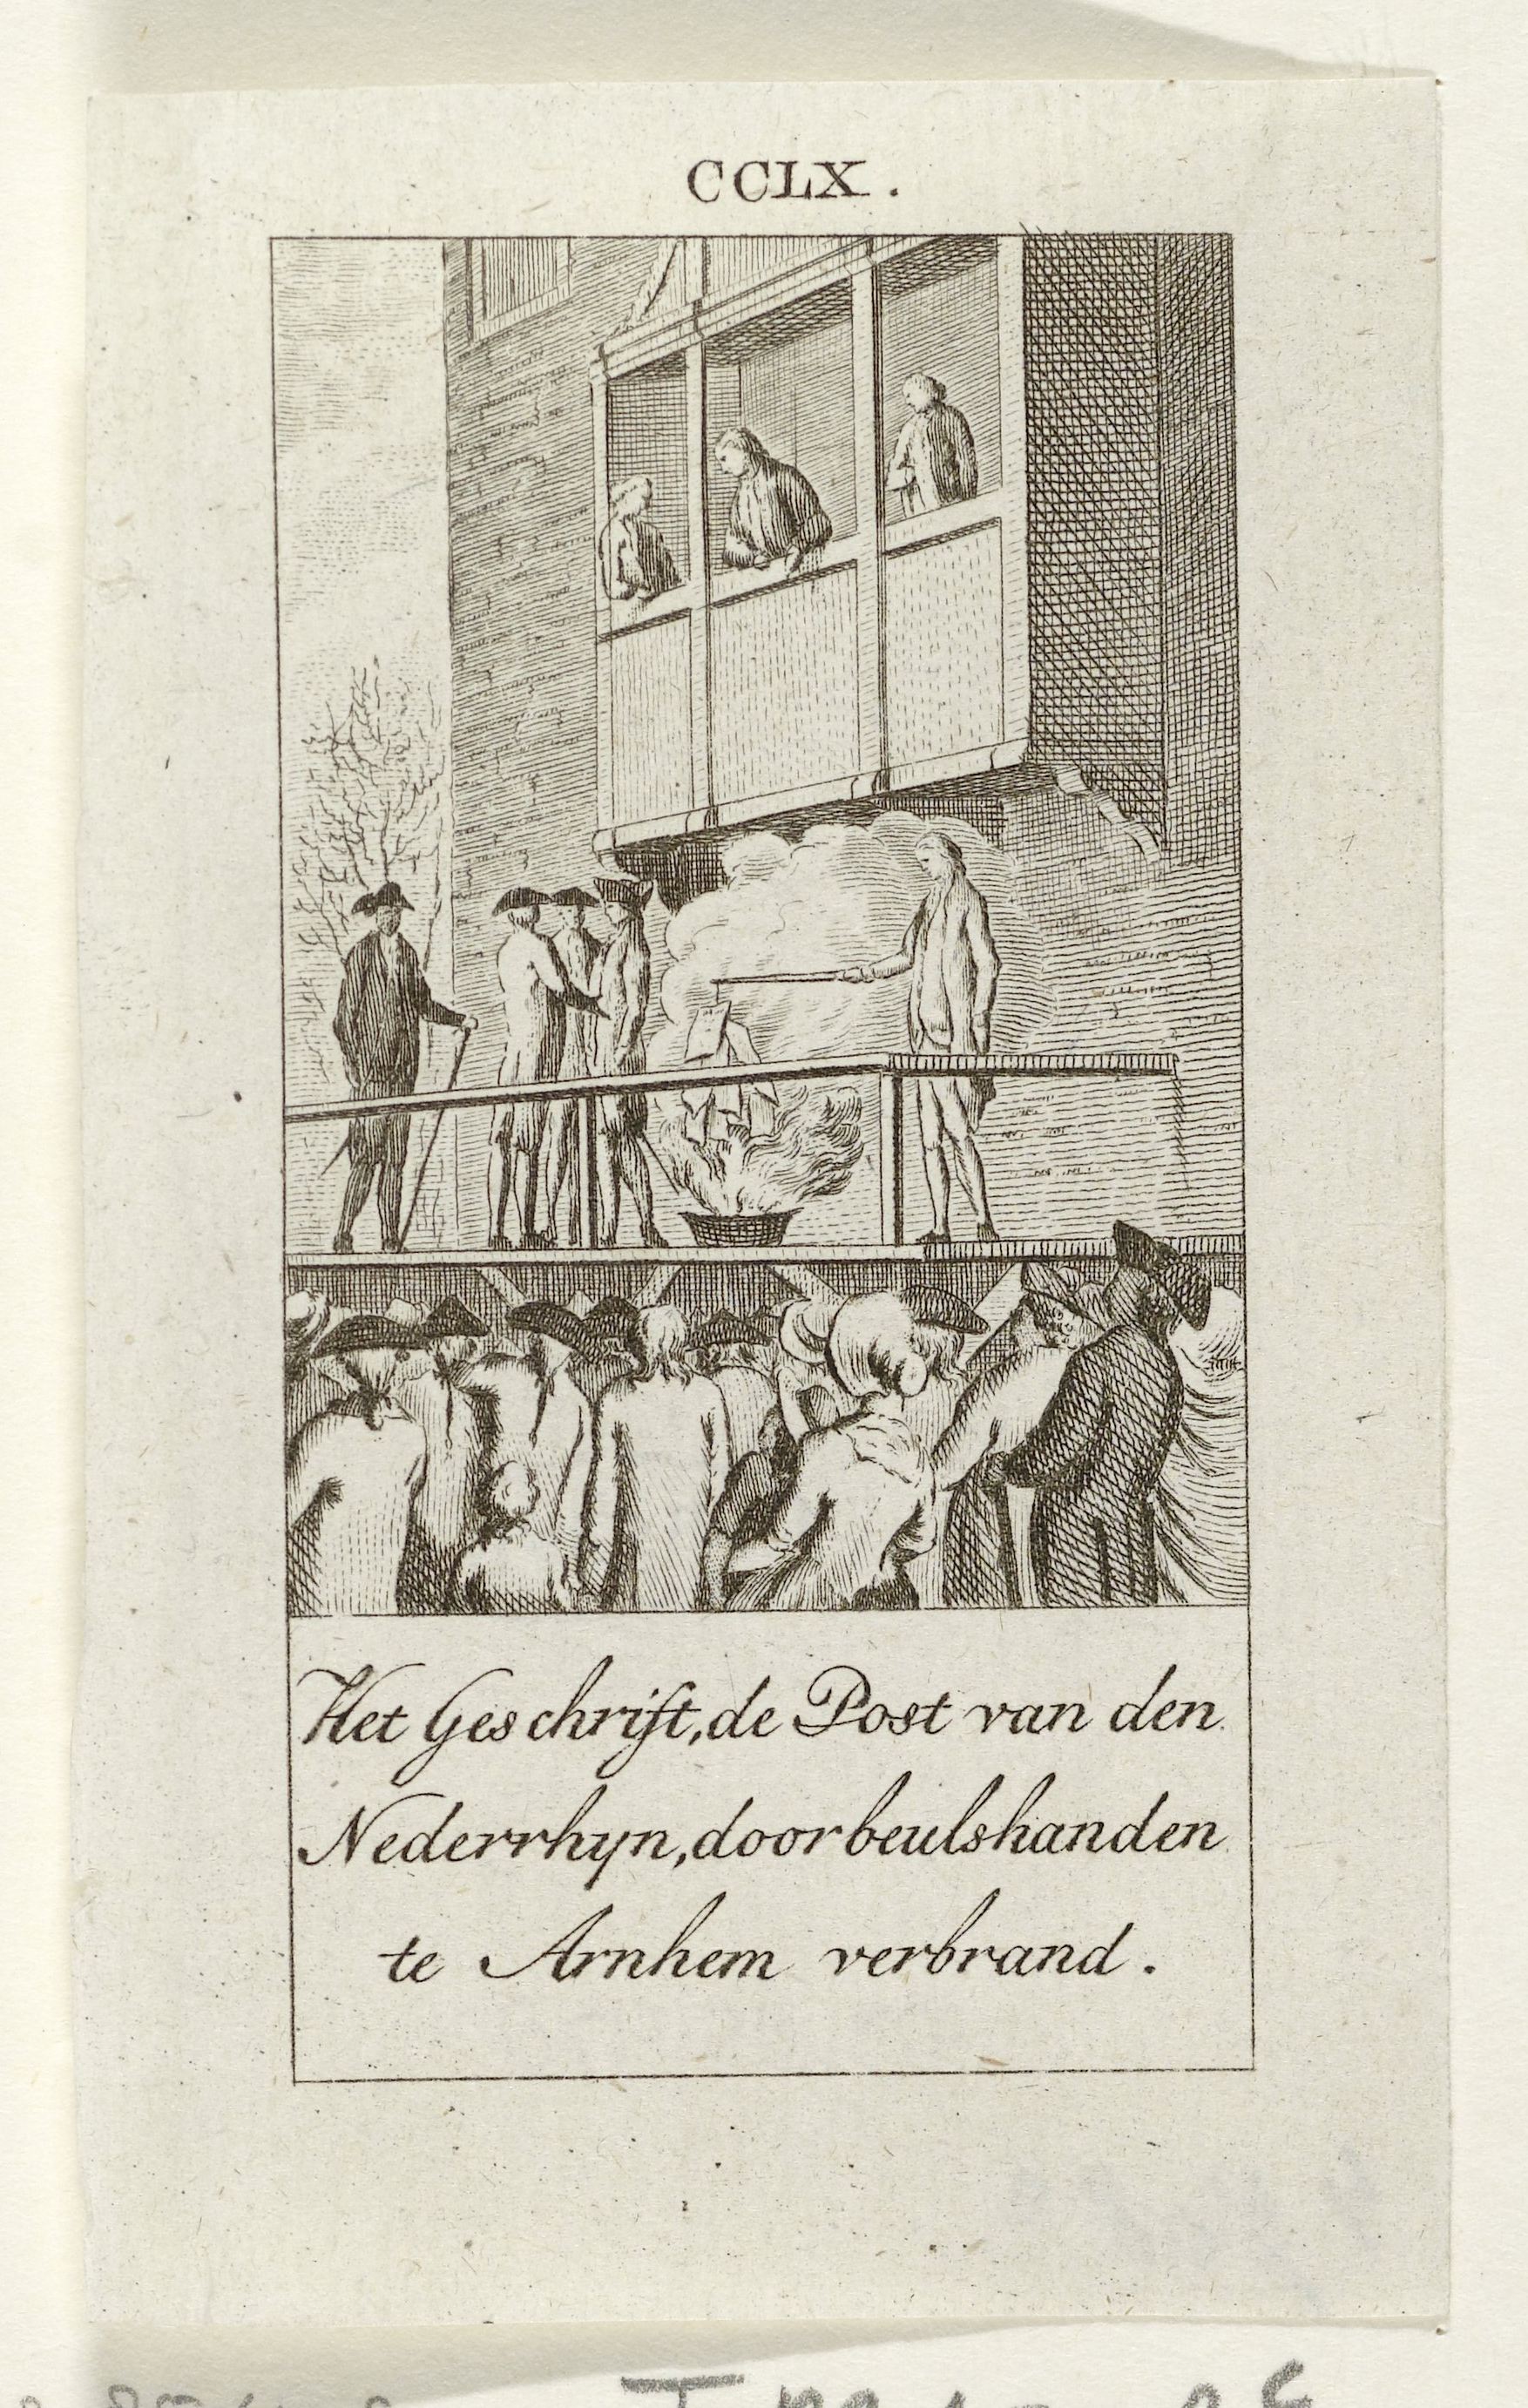 CCLX.
Het Geschrift, de Post van den
Nederrhyn, door beulshanden
te Arnhem verbrand.